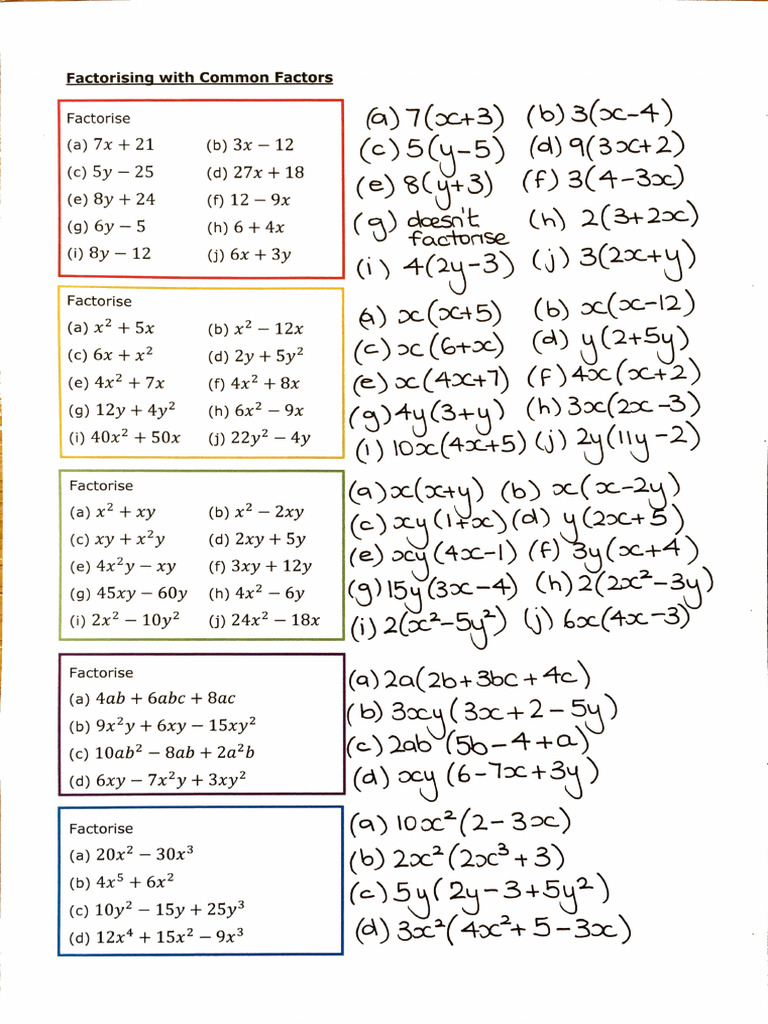 Factorising with Common Factors
Factorise
(a) 7x + 21 (b) 3x − 12
(c) 5y − 25 (d) 27x + 18
(e) 8y + 24 (f) 12 − 9x
(g) 6y − 5 (h) 6 + 4x
(i) 8y − 12 (j) 6x + 3y
(a) 7(x+3) (b) 3(x−4)
(c) 5(y−5) (d) 9(3x+2)
(e) 8(y+3) (f) 3(4−3x)
(g) doesn't factorise (h) 2(3+2x)
(i) 4(2y−3) (j) 3(2x+y)
Factorise
(a) x² + 5x (b) x² − 12x
(c) 6x + x² (d) 2y + 5y²
(e) 4x² + 7x (f) 4x² + 8x
(g) 12y + 4y² (h) 6x² − 9x
(i) 40x² + 50x (j) 22y² − 4y
(a) x(x+5) (b) x(x−12)
(c) x(6+x) (d) y(2+5y)
(e) x(4x+7) (f) 4x(x+2)
(g) 4y(3+y) (h) 3x(2x−3)
(i) 10x(4x+5) (j) 2y(11y−2)
Factorise
(a) x² + xy (b) x² − 2xy
(c) xy + x²y (d) 2xy + 5y
(e) 4x²y − xy (f) 3xy + 12y
(g) 45xy − 60y (h) 4x² − 6y
(i) 2x² − 10y² (j) 24x² − 18x
(a) x(x+y) (b) x(x−2y)
(c) xy(1+x) (d) y(2x+5)
(e) xy(4x−1) (f) 3y(x+4)
(g) 15y(3x−4) (h) 2(2x²−3y)
(i) 2(x²−5y²) (j) 6x(4x−3)
Factorise
(a) 4ab + 6abc + 8ac
(b) 9x²y + 6xy − 15xy²
(c) 10ab² − 8ab + 2a²b
(d) 6xy − 7x²y + 3xy²
(a) 2a(2b+3bc+4c)
(b) 3xy(3x+2−5y)
(c) 2ab(5b−4+a)
(d) xy(6−7x+3y)
Factorise
(a) 20x² − 30x³
(b) 4x⁵ + 6x²
(c) 10y² − 15y + 25y³
(d) 12x⁴ + 15x² − 9x³
(a) 10x²(2−3x)
(b) 2x²(2x³+3)
(c) 5y(2y−3+5y²)
(d) 3x²(4x²+5−3x)